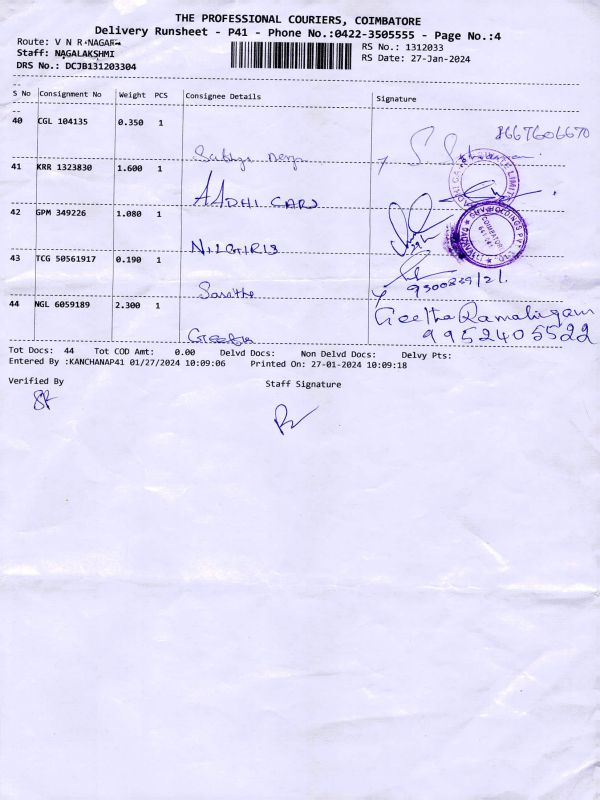 THE PROFESSIONAL COURIERS, COIMBATORE
Delivery Runsheet - P41 - Phone No.:0422-3505555 - Page No.:4
Route: V N R NAGAR
RS No.: 1312033
Staff: NAGALAKSHMI
RS Date: 27-Jan-2024
DRS No.: DCJB131203304
S No Consignment No Weight PCS Consignee Details Signature
40 CGL 104135 0.350 1
8667606670
41 KRR 1323830 1.600 1
AADHI CARS
42 GPM 349226 1.080 1
NILGIRIS
43 TCG 50561917 0.190 1
Saritha
44 NGL 6059189 2.300 1
Geetha Ramalingam
9952405522
Geetha
Tot Docs: 44 Tot COD Amt: 0.00 Delvd Docs: Non Delvd Docs: Delvy Pts:
Entered By :KANCHANAP41 01/27/2024 10:09:06 Printed On: 27-01-2024 10:09:18
Verified By
Staff Signature